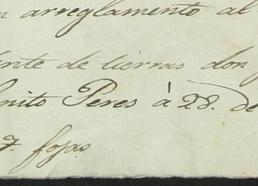 arreglamento al
ente de tierras don
enito Peres à 28. de
7. fojas